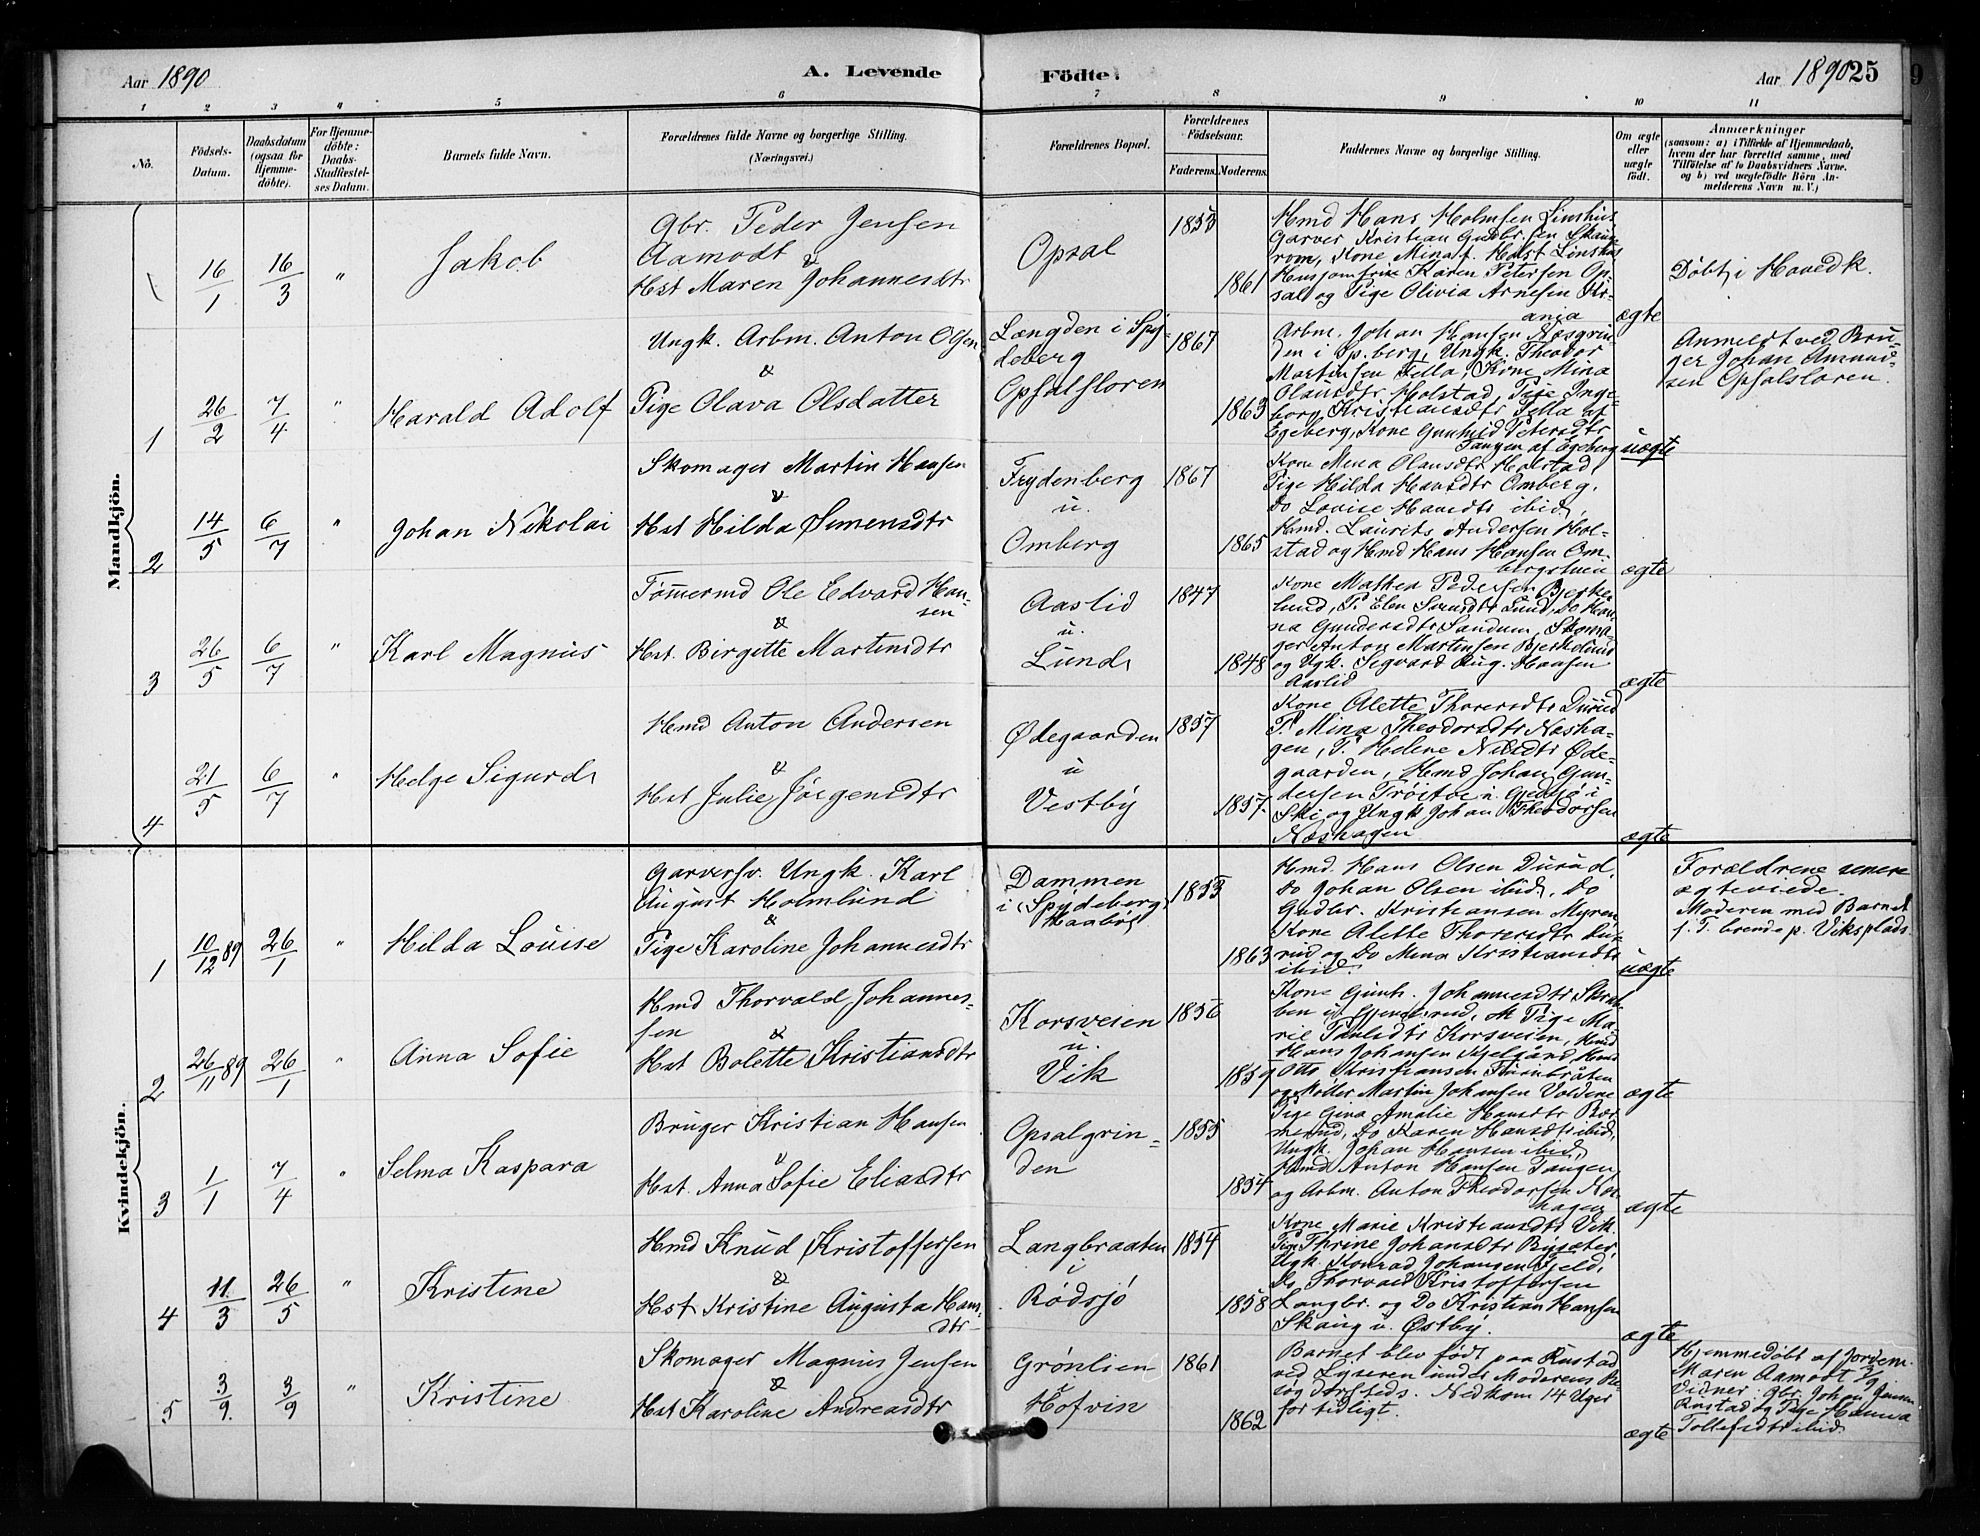 Aar 1890
A. Levende
Födte.
Aar 1890
25
1 2 3 4 5 6 7 8 9 10 11
No.
Födsels-
Datum.
Daabsdatum
(ogsaa for
Hjemme-
döbte).
For Hjemme-
döbte:
Daabs-
Stadfæstel-
ses Datum.
Barnets fulde Navn.
Forældrenes fulde Navne og borgerlige Stilling.
(Næringsvei.)
Forældrenes Bopæl.
Forældrenes
Födselsaar.
Faderens.
Moderens.
Faddernes Navne og borgerlige Stilling.
Om ægte
eller
uægte
födt.
Anmærkninger
(saasom: a) i Tilfælde af Hjemmedaab,
hvem der har forrettet samme, med
Tilföielse af to Daabsvidners Navne.
og b) ved uægtefödte Börn An-
melderens Navn m. V.)
Mandkjön.
16/1
16/3
"
Jakob
Gbr. Peder Jensen
Aamodt &
Hst Maren Johannesdtr
Opsal
1853
1861
Hmd Hans Holmsen Linshus
Garver, Kristian Gudbr.sen Skau-
rom, Kone Mina f. Holst Linshus
Husjomfru Karen Petersen Op-
sal og Pige Olivia Arnesen Kri-
ania
ægte
Döbt i Hovedk.
1
26/2
7/4
"
Harald Adolf
Ungk. Arbm. Anton Olsen
&
Pige Olava Olsdatter
Længden i Spy-
deberg
Opsalsloren
1867
1863
Arbm. Johan Hansen Næsgrin-
den i Sp.berg, Ungk. Theodor
Martinsen Fella, Kone Mina
Olausdtr. Holstad, Pige Inge-
borg Kristiansdtr Fella af
Egeberg, Kone Gunhild Petersdtr
Tangen af Egeberg
uægte
Anmeldt ved Bru-
ger Johan Amund-
sen Opsalsloren.
2
14/5
6/7
"
Johan Nikolai
Skomager Martin Hansen
&
Hst Hilda Simensdtr
Frydenberg
u.
Omberg
1867
1865
Kone Mina Olausdtr Holstad,
Pige Hilda Hansdtr Omberg.
Do Lovise Hansdtr ibid,
Hmd. Laurits Andersen Hol-
stad og Hmd Hans Hansen Om-
bergstuen
ægte
3
26/5
6/7
"
Karl Magnus
Tömermd Ole Edvard Han-
sen
&
Hst. Birgitte Martinsdtr
Aaslid
u.
Lund
1847
1848
Kone Mathea Pedersen Bjerke-
lund, P. Elen Svendsdtr Lund, Do Han-
na Gundersdtr Sandum, Skoma-
ger Anton Martinsen Bjerkelund
og Ugk. Sigvard Aug. Hansen
Aaslid
ægte
4
21/5
6/7
"
Helge Sigurd
Hmd Anton Andersen
&
Hst Julie Jörgensdtr
Ødegaarden
u
Vestby
1857
1857.
Kone Alette Thoresdtr Durud
P. Mina Theodorsdtr Næsha-
gen, P. Helene Nilsdtr Øde-
gaarden, Hmd Johan Gun-
dersen Tröstoe u. Gjedsjö i
Ski og Ungk Johan Theodorsen
Næshagen
ægte
Kvindekjön.
1
10/12 89
26/1
"
Hilda Louise
Garversv. Ungk. Karl
August Holmlund
&
Pige Karoline Johannesdtr
Dammen
i Spydeberg
Haaböl
1853
1863
Hmd. Hans Olsen Durud,
Do Johan Olsen ibid, Do
Gudbr. Kristiansen Myren
Kone Alette Thoresdtr Du-
rud og Do Mina Kristiansdtr
ibid.
uægte
Forældrene senere
ægteviede.
Moderen med Barnet
f. T. boende p. Viksplads.
2
26/11 89
26/1
"
Anna Sofie
Hmd Thorvald Johannes-
sen
&
Hst Bolette Kristiansdtr
Korsveien
u.
Vik
1856
1859
Kone Gunh. Johannesdtr
Pige Ma-
rie Paulsdtr Korsveien, Hmd
Hans Johansen Kjelsand, Hmd
Otto Kristiansen Furubråten
og Möller Martin Johansen Voldene
ægte
3
1/1
7/4
"
Selma Kaspara
Bruger Kristian Hansen
&
Hst. Anna Sofie Eliasdtr
Opsalgrin-
den
1855
1854
Pige Gina Amalie Hansdtr
Do Karen Hansdtr ibid,
Ungk. Johan Hansen ibid,
Hmd Anton Hansen Tangen
og Arbm. Anton Theodorsen Næs-
hagen
ægte
4
11/3
26/5
"
Kristine
Hmd Knud Kristoffersen
&
Hst Kristine Augusta Hans-
dtr
Langbraaten
i
Rödsjö
1854
1858
Kone Marie Kristiansdtr Vik
Pige Thrine Johansdtr Byseter,
Ugk. Konrad Johansen Fjeld,
Do Thorvald Kristoffersen
Langbr. og Do Kristian Hansen
Skaug u. Østby.
ægte
5
3/9.
3/9
"
Kristine
Skomager Magnus Jensen
&
Hst Karoline Andreasdtr
Grönlien
i
Hofvin
1861
1862
Barnet blev födt paa Rustad
ved Lyseren under Moderens Be-
sög dersteds. Nedkom 14 Uger
for tidligt.
ægte
Hjemmedöbt af Jordem.
Maren Aamodt 3/9
Vidner: Gbr. Johan Jensen
Rustad og Pige Hanna
Tollefsdtr ibid